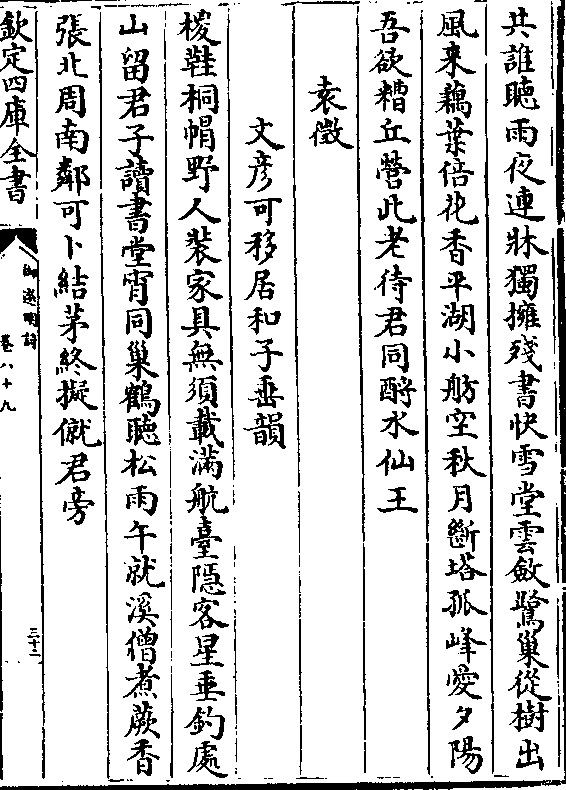 共誰聽雨夜連牀獨擁殘書快雪堂雲斂鷺巢從樹出
風來藕葉倍花香平湖小舫空秋月斷塔孤峰愛夕陽
吾欲糟丘營此老待君同酹水仙王
袁徵
文彦可移居和子垂韻
椶鞋桐帽野人裝家具無須載滿航臺隱客星垂釣處
山留君子讀書堂宵同巢鶴聽松雨午就溪僧煮蕨香
張北周南鄰可卜結茅終擬僦君旁
欽定四庫全書
御選明詩
卷八十九
三十二